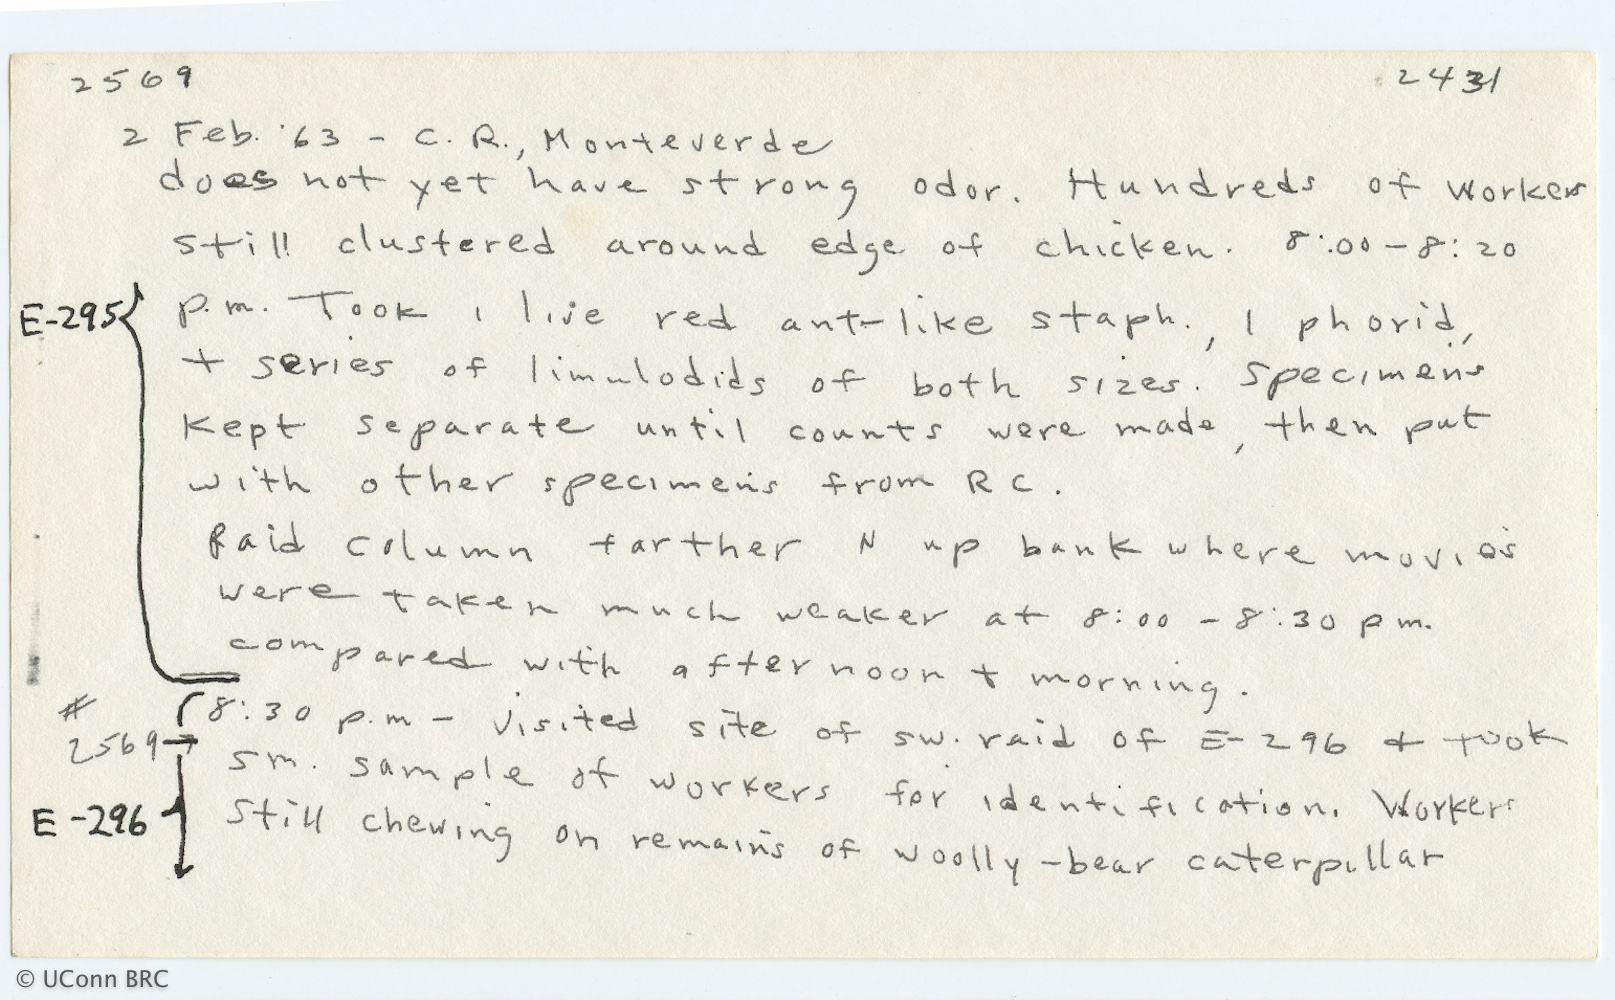 2569 2431
2 Feb. '63 - C. R., Monteverde
does not yet have strong odor. Hundreds of workers
still clustered around edge of chicken. 8:00-8:20
E-295 p.m. Took 1 live red ant-like staph., 1 phorid,
+ series of limulodids of both sizes. Specimens
kept separate until counts were made, then put
with other specimens from RC.
Raid column farther N up bank where movies
were taken much weaker at 8:00 - 8:30 pm.
compared with afternoon + morning.
# 8:30 p.m - visited site of sw. raid of E-296 + took
2569→ sm. sample of workers for identification. Workers
E-296 still chewing on remains of woolly-bear caterpillar
© UConn BRC